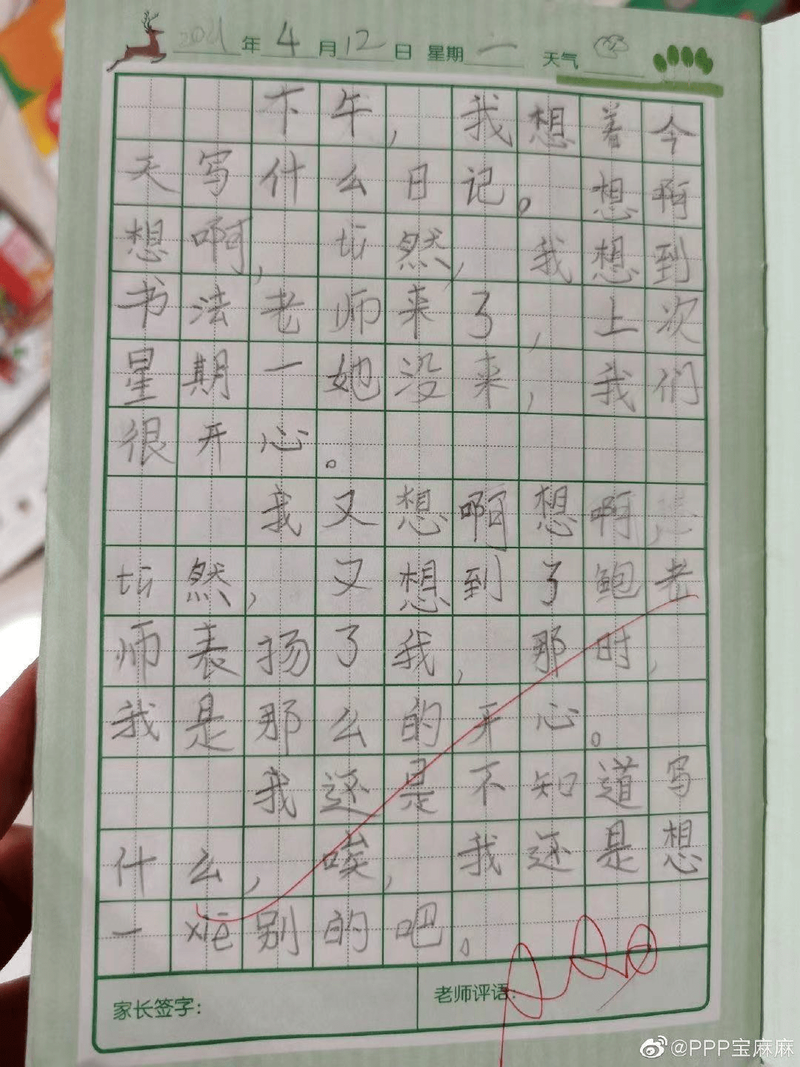 2021年4月12日 星期一 天气
下午，我想着今
天写什么日记。想啊
想啊，tū然，我想到
书法老师来了，上次
星期一她没来，我们
很开心。
我又想啊想啊，
tū然，又想到了鲍老
师表扬了我，那时，
我是那么的开心。
我还是不知道写
什么，唉，我还是想
一xiē别的吧。
家长签字：
老师评语：
@PPP宝麻麻